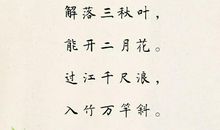 解落三秋叶，
能开二月花。
过江千尺浪，
入竹万竿斜。